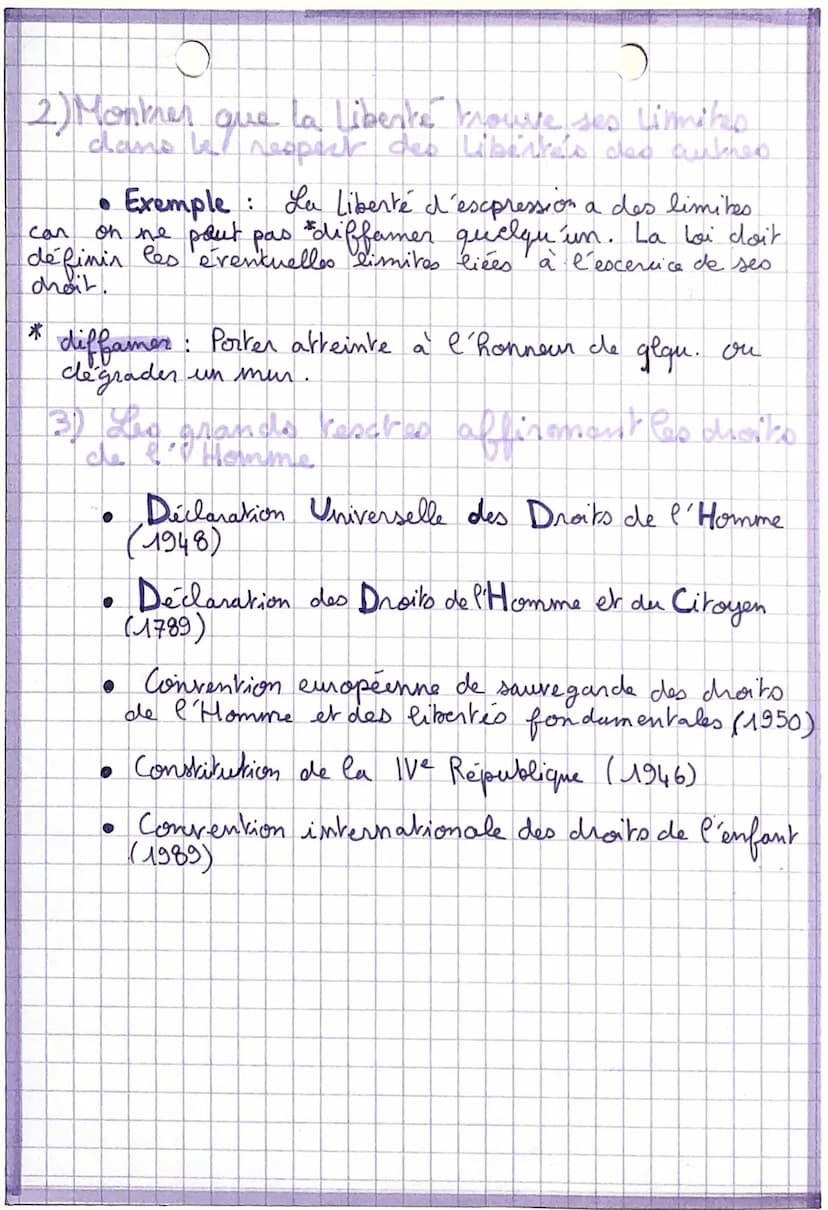 2) Montrer que la Liberté trouve ses limites
dans le respect des libertés des autres
• Exemple : La Liberté d'expression a des limites
car on ne peut pas *diffamer quelqu'un. La loi doit
définir les éventuelles limites liées à l'exercice de ses
droit.
* diffamer : Porter atteinte à l'honneur de qlqu. ou
dégrader un mur.
3) Les grands textes affirmant les droits
de l'Homme
• Déclaration Universelle des Droits de l'Homme
(1948)
• Déclaration des Droits de l'Homme et du Citoyen
(1789)
• Convention européenne de sauvegarde des droits
de l'Homme et des libertés fondamentales (1950)
• Constitution de la IVe République (1946)
• Convention internationale des droits de l'enfant
(1989)